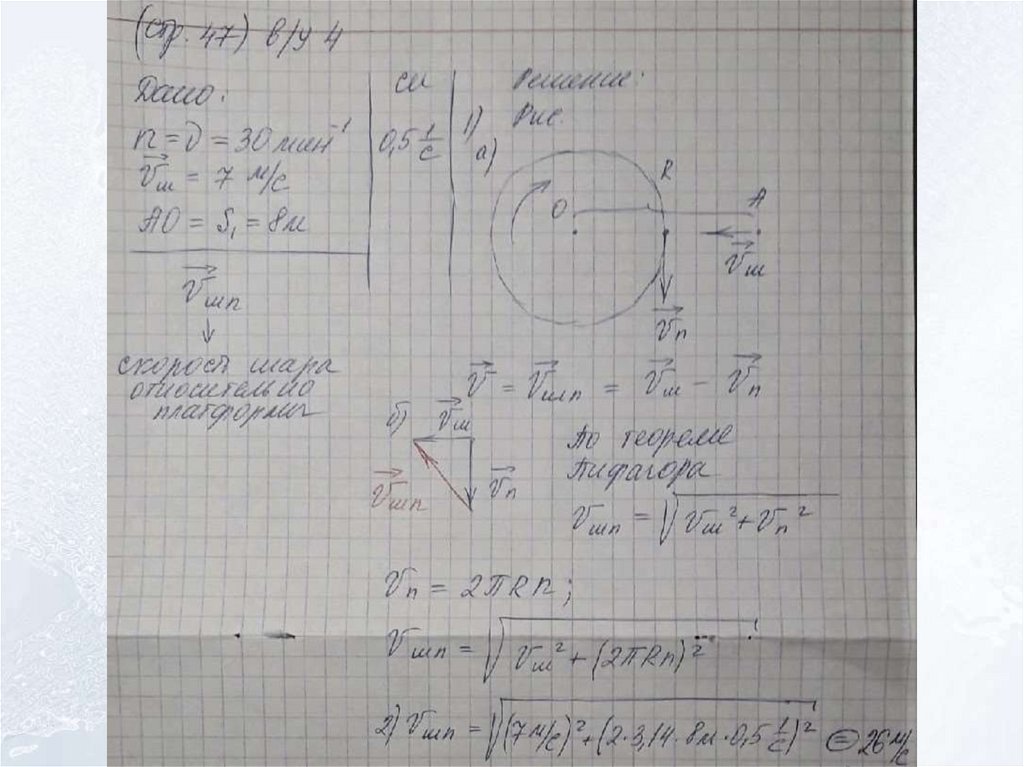 (стр. 47) в/у 4
Дано:
n = ν = 30 мин⁻¹
v⃗ш = 7 м/с
АО = S₁ = 8м
v⃗шп
↓
скорость шара
относительно
платформы
СИ
0,5 1/с
Решение:
1) Рис.
а)
O
R
A
v⃗ш
v⃗п
v⃗ = v⃗шп = v⃗ш − v⃗п
б) v⃗ш
v⃗п
v⃗шп
По теореме
Пифагора
vшп = √(vш² + vп²)
vп = 2πRn;
vшп = √(vш² + (2πRn)²)
2) vшп = √((7 м/с)² + (2·3,14·8м·0,5 1/с)²) = 26 м/с